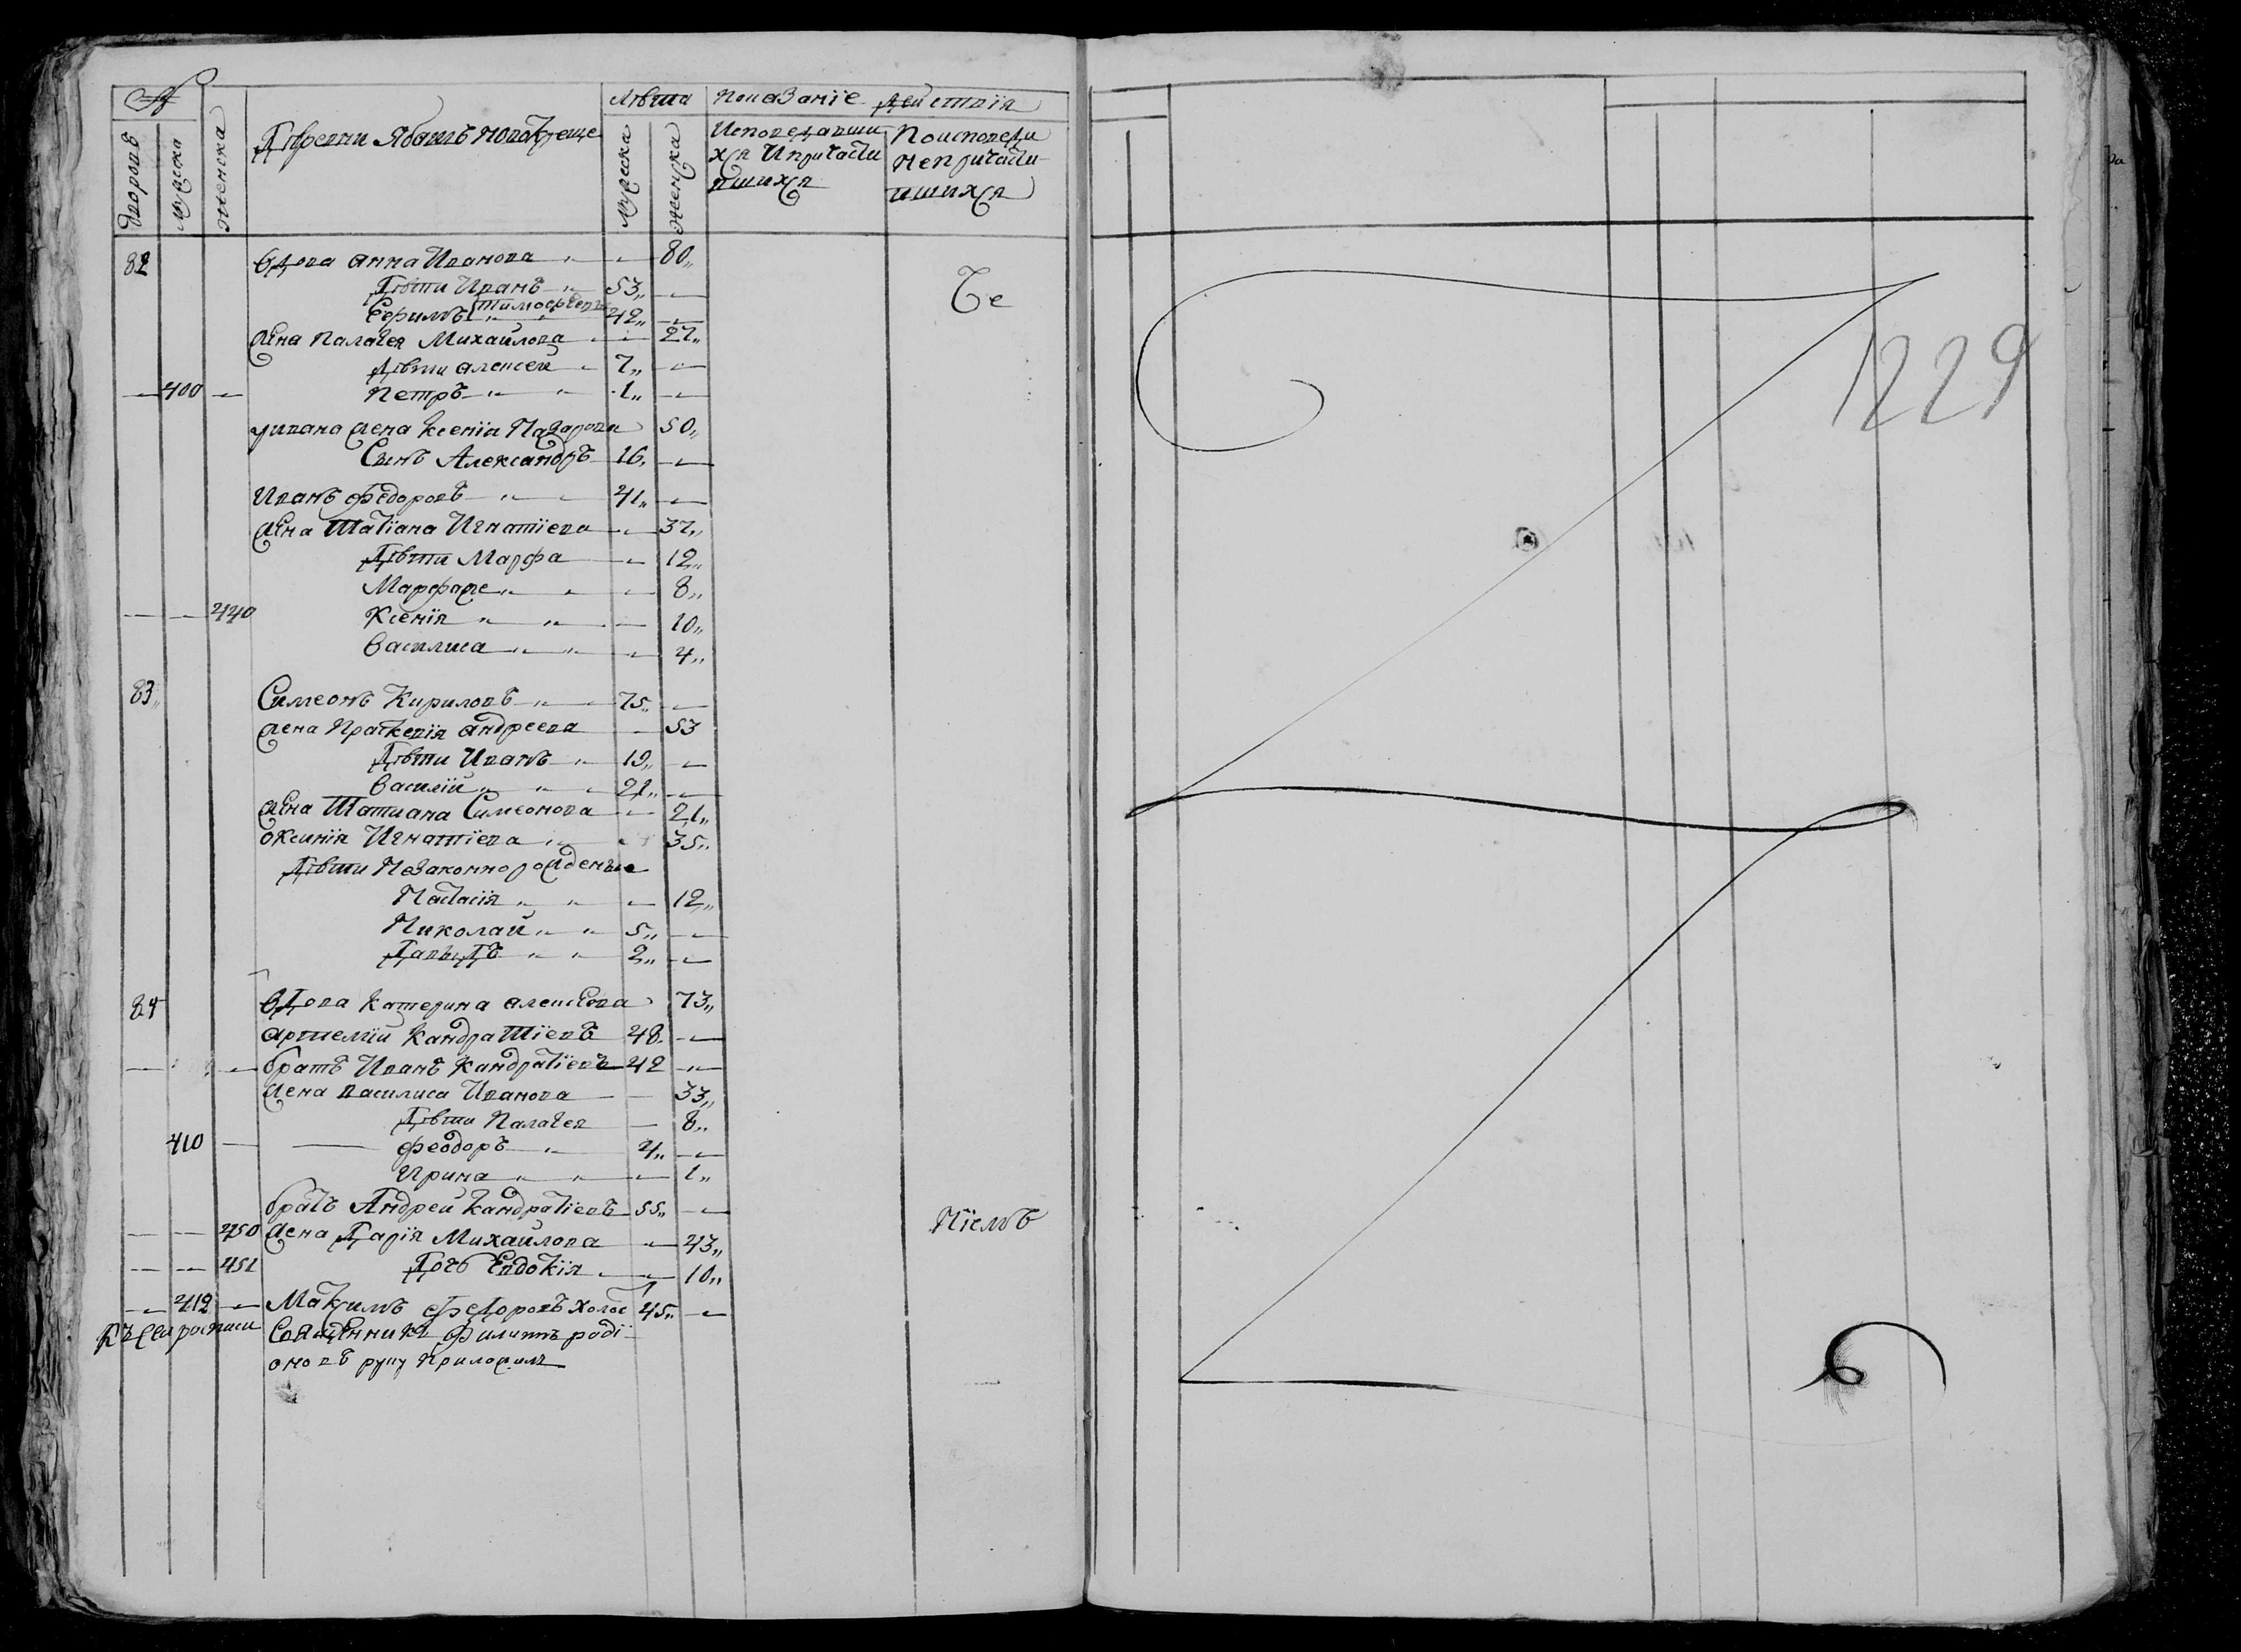 №
дворовъ
мужеска
женска
Деревни Ябашъ новокреще
лѣта
мужеска
женска
показанїе действїя
Исповедавши
хся и причасти
вшихся
по исповеди
не причасти
вшихся
82 вдова анна Иванова 80
дѣти Иванъ 53
Сефимъ тимофѣевъ 42
жена палагея Михаилова 27
дѣти алексей 7
400 петръ 1
у ивана жена ксенїя Назарова 50
Сынъ Александръ 16
Иванъ федоровъ 41
жена татїана Игнатїева 37
дѣти Марфа 12
Марфаже 8
440 Ксенїя 10
василиса 4
83 Симеонъ Кириловъ 75
жена праскевїя андреева 53
дѣти Иванъ 19
василїй 21
жена татиана Симеонова 21
оксинїя Игнатїева 35
дѣти незаконнорожденые
Настасїя 12
Николай 5
давыдъ 2
84 вдова катерина алексѣева 73
артемїй кандратїевъ 48
братъ Иванъ кандратїевъ 42
жена василиса Иванова 33
дѣти палагея 8
410 феодоръ 4
Ирина 1
братъ Андрей кандратїевъ 55
450 жена дарїя Михайлова 43
451 дочь Евдокїя 10
412 Маѯимъ федоровъ холос 45
Къ сеи росписи Священникъ филиппъ родї
оновъ руку приложилъ
Че
Нїемъ
1229